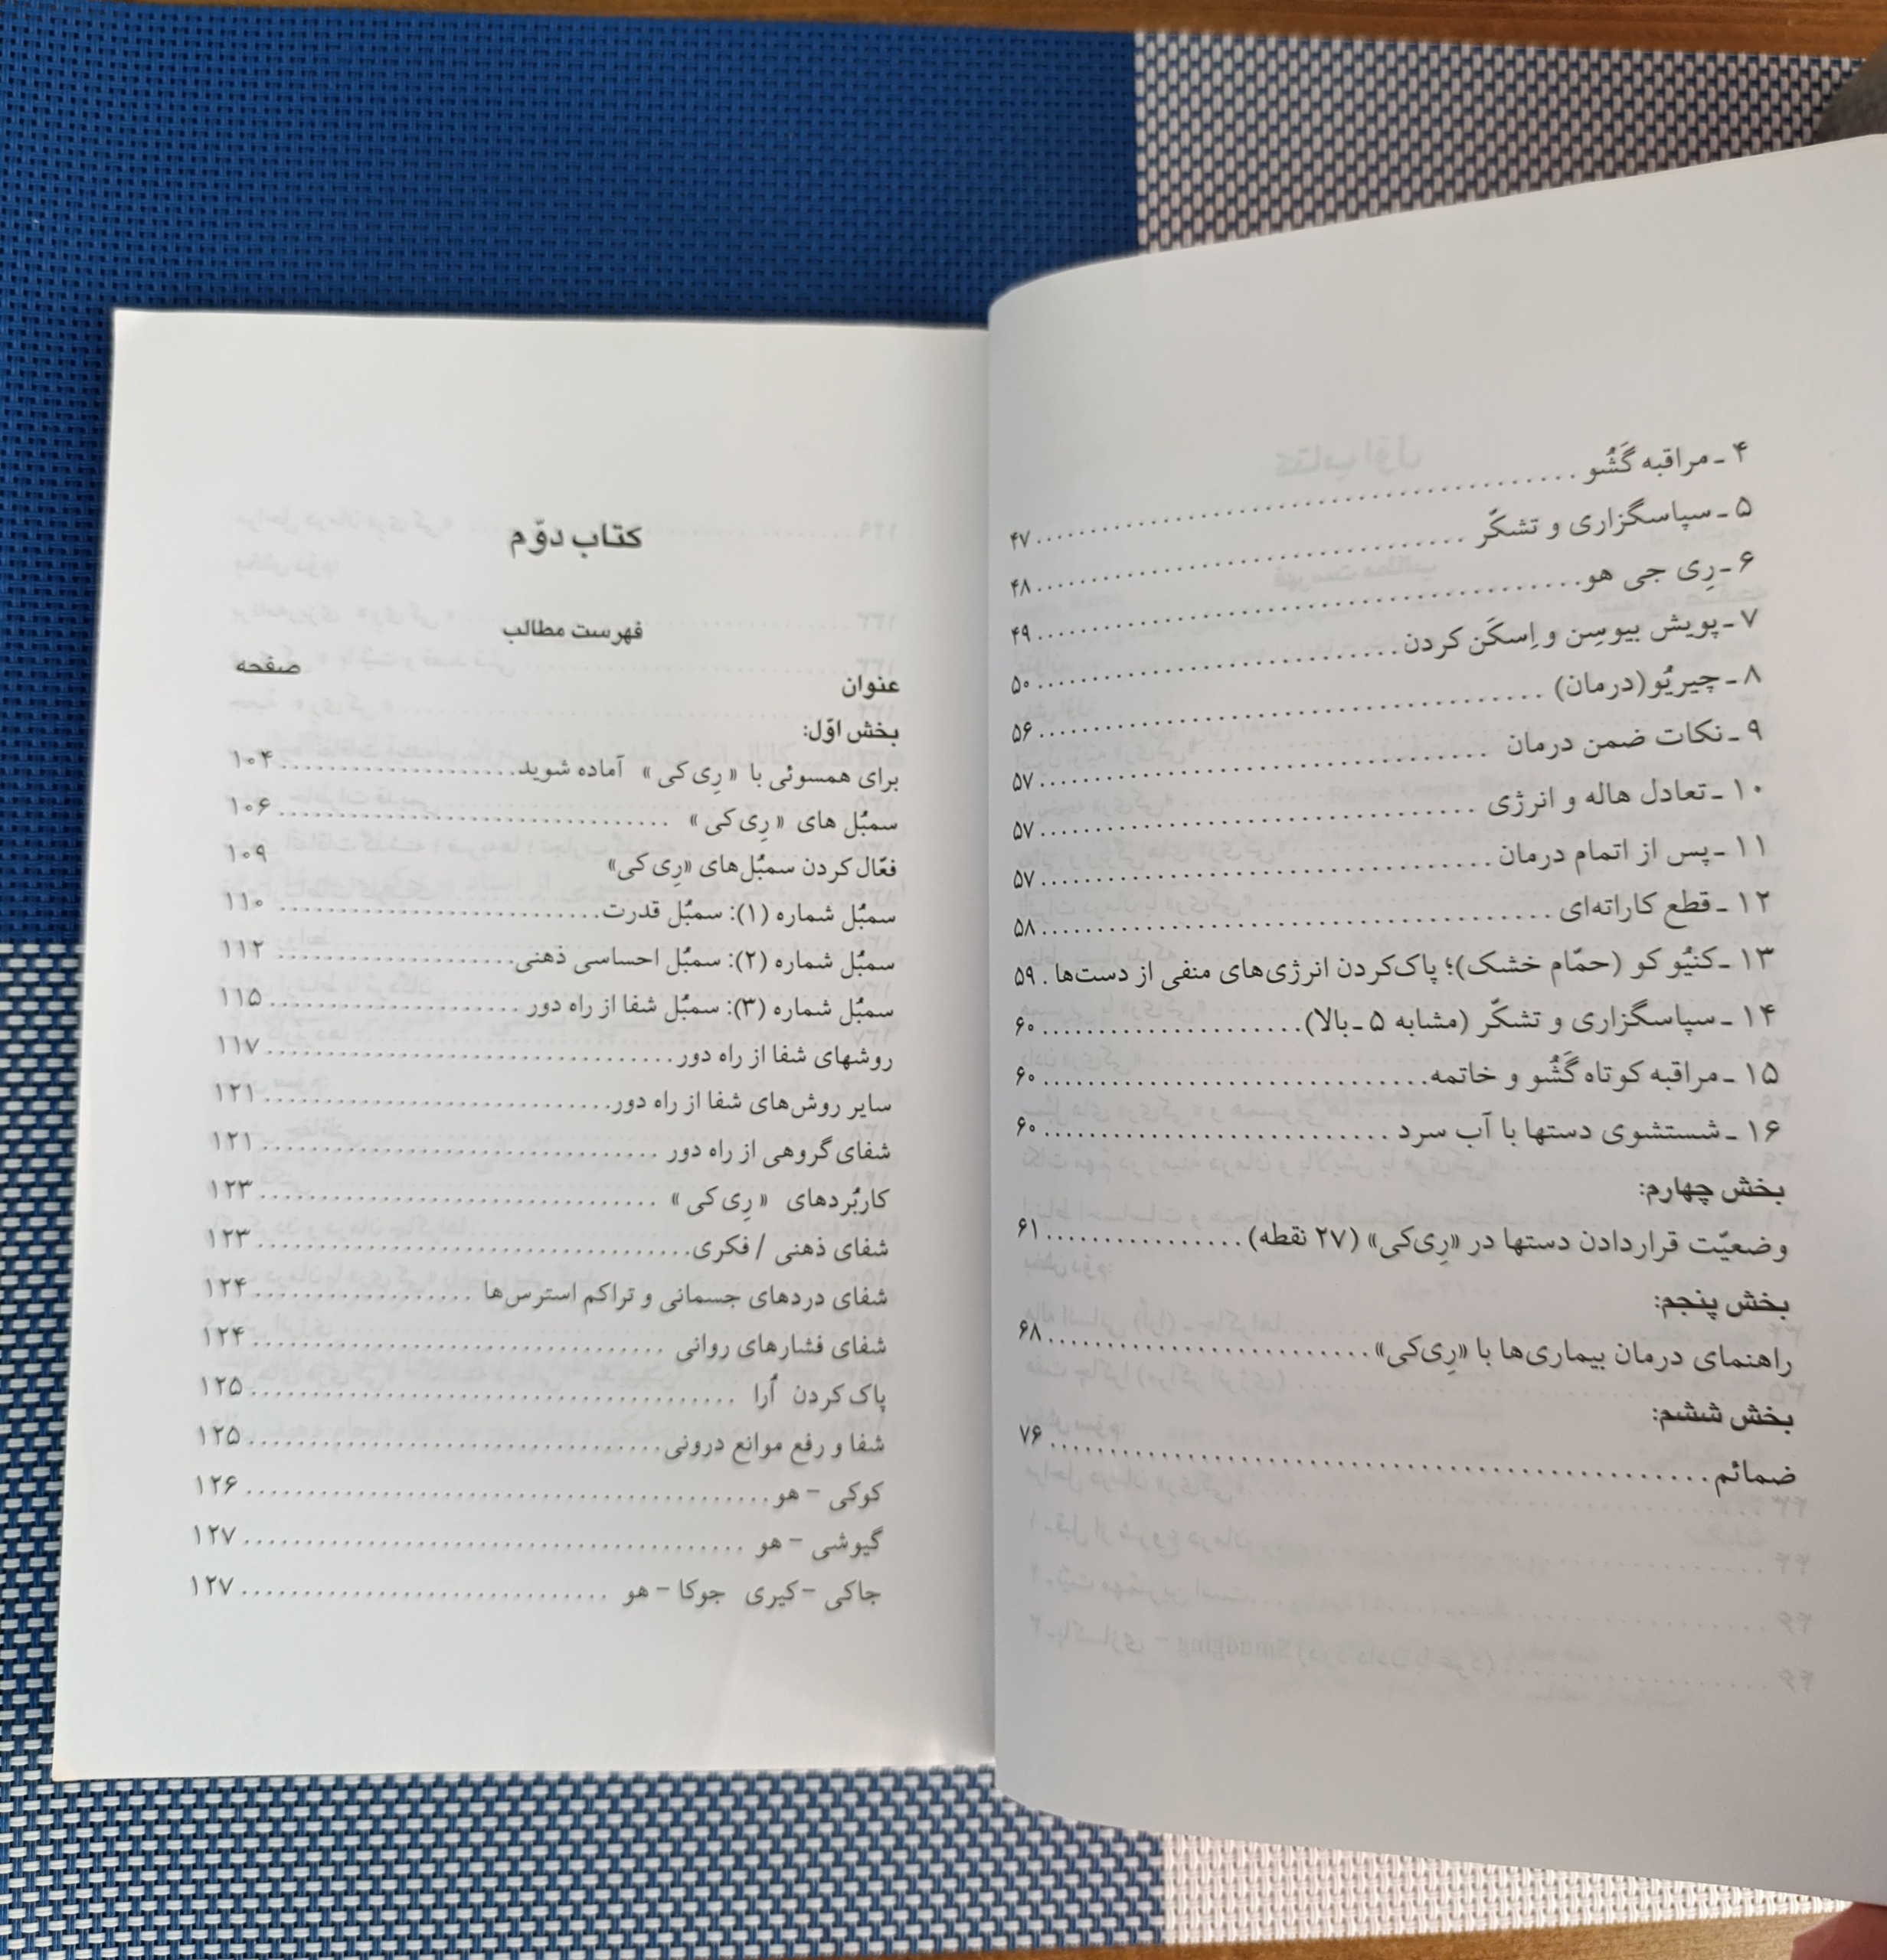 ۴ ـ مراقبه گَشُو ........ ۴۷
۵ ـ سپاسگزاری و تشکّر ........ ۴۸
۶ ـ رِی جی هو ........ ۴۹
۷ ـ پویش بیوسِن و اِسکَن کردن ........ ۵۰
۸ ـ چیریُو (درمان) ........ ۵۶
۹ ـ نکات ضمن درمان ........ ۵۷
۱۰ ـ تعادل هاله و انرژی ........ ۵۷
۱۱ ـ پس از اتمام درمان ........ ۵۷
۱۲ ـ قطع کاراته‌ای ........ ۵۸
۱۳ ـ کنیُو کو (حمّام خشک)؛ پاک‌کردن انرژی‌های منفی از دست‌ها . ۵۹
۱۴ ـ سپاسگزاری و تشکّر (مشابه ۵ ـ بالا) ........ ۶۰
۱۵ ـ مراقبه کوتاه گَشُو و خاتمه ........ ۶۰
۱۶ ـ شستشوی دستها با آب سرد ........ ۶۰
بخش چهارم:
وضعیّت قراردادن دستها در «رِی‌کی» (۲۷ نقطه) ........ ۶۱
بخش پنجم:
راهنمای درمان بیماری‌ها با «رِی‌کی» ........ ۶۸
بخش ششم:
ضمائم ........ ۷۶
کتاب دوّم
فهرست مطالب
عنوان صفحه
بخش اوّل:
برای همسوئی با « رِی کی » آماده شوید ........ ۱۰۴
سمبُل های « رِی کی » ........ ۱۰۶
فعّال کردن سمبُل‌های «رِی کی» ۱۰۹
سمبُل شماره (۱): سمبُل قدرت ........ ۱۱۰
سمبُل شماره (۲): سمبُل احساسی ذهنی ........ ۱۱۲
سمبُل شماره (۳): سمبُل شفا از راه دور ........ ۱۱۵
روشهای شفا از راه دور ........ ۱۱۷
سایر روش‌های شفا از راه دور ........ ۱۲۱
شفای گروهی از راه دور ........ ۱۲۱
کاربُردهای « رِی کی » ........ ۱۲۳
شفای ذهنی / فکری ........ ۱۲۳
شفای دردهای جسمانی و تراکم استرس‌ها ........ ۱۲۴
شفای فشارهای روانی ........ ۱۲۴
پاک کردن اُرا ........ ۱۲۵
شفا و رفع موانع درونی ........ ۱۲۵
کوکی – هو ........ ۱۲۶
گیوشی – هو ........ ۱۲۷
جاکی – کیری جوکا – هو ........ ۱۲۷